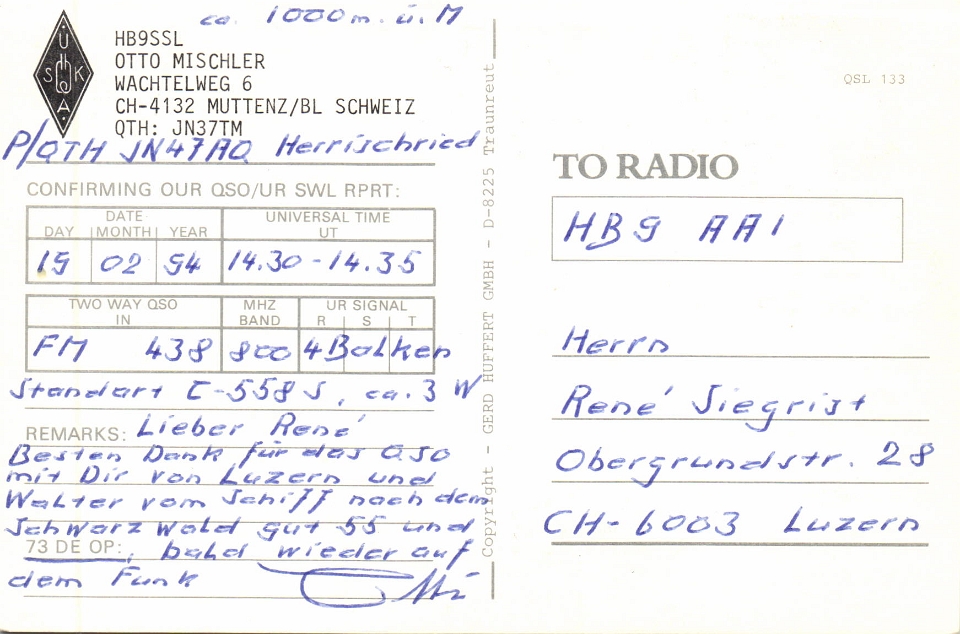 ca. 1000 m. ü. M
U S K A
HB9SSL
OTTO MISCHLER
WACHTELWEG 6
CH-4132 MUTTENZ/BL SCHWEIZ
QTH: JN37TM
P/QTH JN47AQ Herrischried
CONFIRMING OUR QSO/UR SWL RPRT:
DATE UNIVERSAL TIME
DAY MONTH YEAR UT
19 02 94 14.30 - 14.35
TWO WAY QSO MHZ UR SIGNAL
IN BAND R S T
FM 438 800 4 Balken
Standart C-558 S, ca. 3 W
REMARKS: Lieber René
Besten Dank für das QSO
mit Dir von Luzern und
Walter vom Schiff nach dem
Schwarzwald gut 55 und
73 DE OP: bald wieder auf
dem Funk Otti
Copyright - GERD HUFFERT GMBH - D-8225 Traunreut
QSL 133
TO RADIO
HB9 AAI
Herrn
René Siegrist
Obergrundstr. 28
CH-6003 Luzern